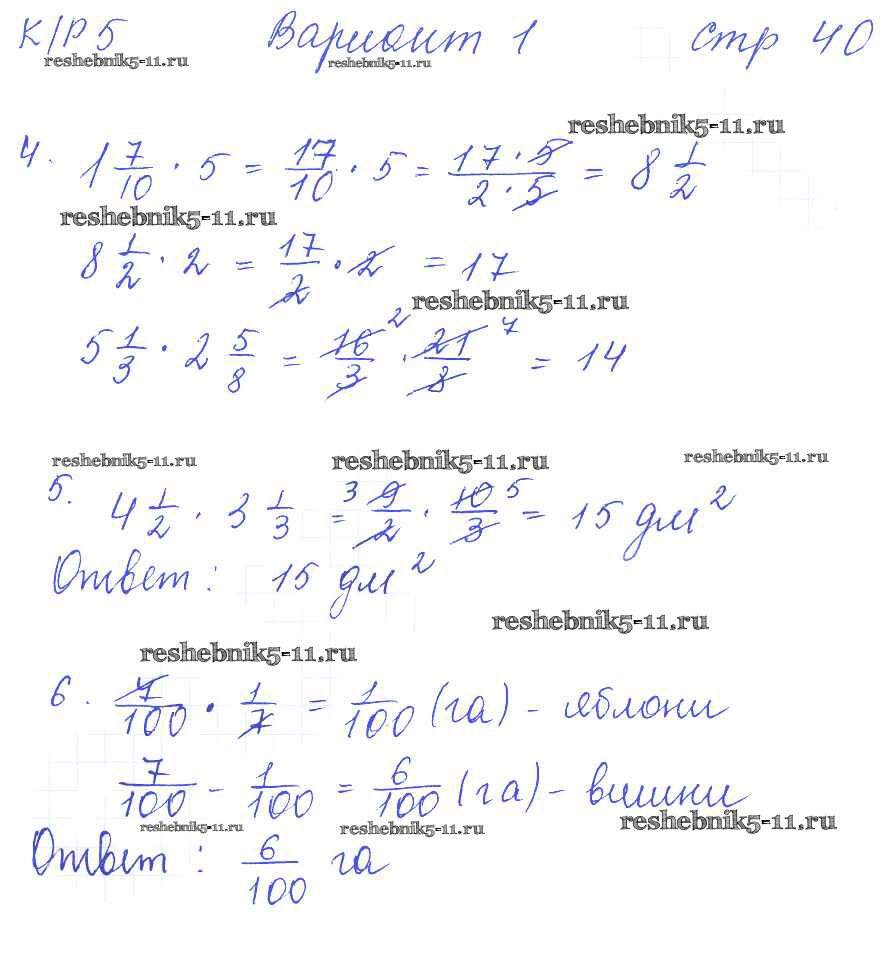 К/Р 5 Вариант 1 стр 40
reshebnik5-11.ru reshebnik5-11.ru
reshebnik5-11.ru
4. 1 7/10 · 5 = 17/10 · 5 = 17 · 5 / 2 · 5 = 8 1/2
reshebnik5-11.ru
8 1/2 · 2 = 17/2 · 2 = 17
reshebnik5-11.ru
5 1/3 · 2 5/8 = 16/3 2 · 21/8 7 = 14
reshebnik5-11.ru reshebnik5-11.ru reshebnik5-11.ru
5. 4 1/2 · 3 1/3 = 3 9/2 · 10/3 5 = 15 дм²
Ответ: 15 дм²
reshebnik5-11.ru
reshebnik5-11.ru
6. 7/100 · 1/7 = 1/100 (га) - яблони
7/100 - 1/100 = 6/100 (га) - вишни
reshebnik5-11.ru reshebnik5-11.ru reshebnik5-11.ru
Ответ: 6/100 га